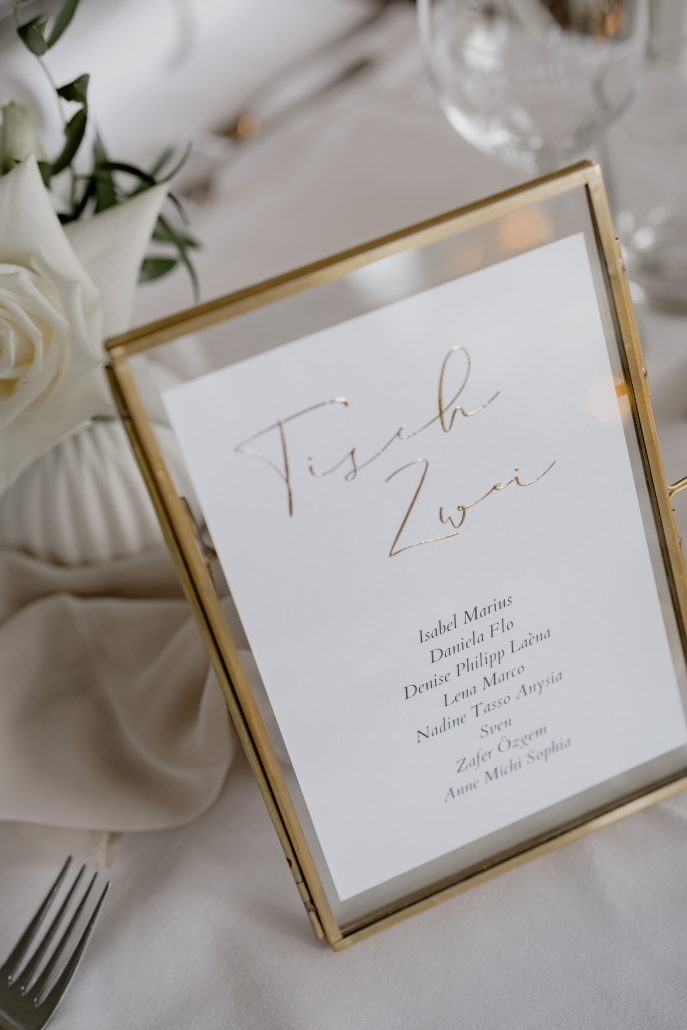 Tisch
Zwei
Isabel Marius
Daniela Flo
Denise Philipp Laèna
Lena Marco
Nadine Tasso Anysia
Sven
Zafer Özgem
Anne Michi Sophia